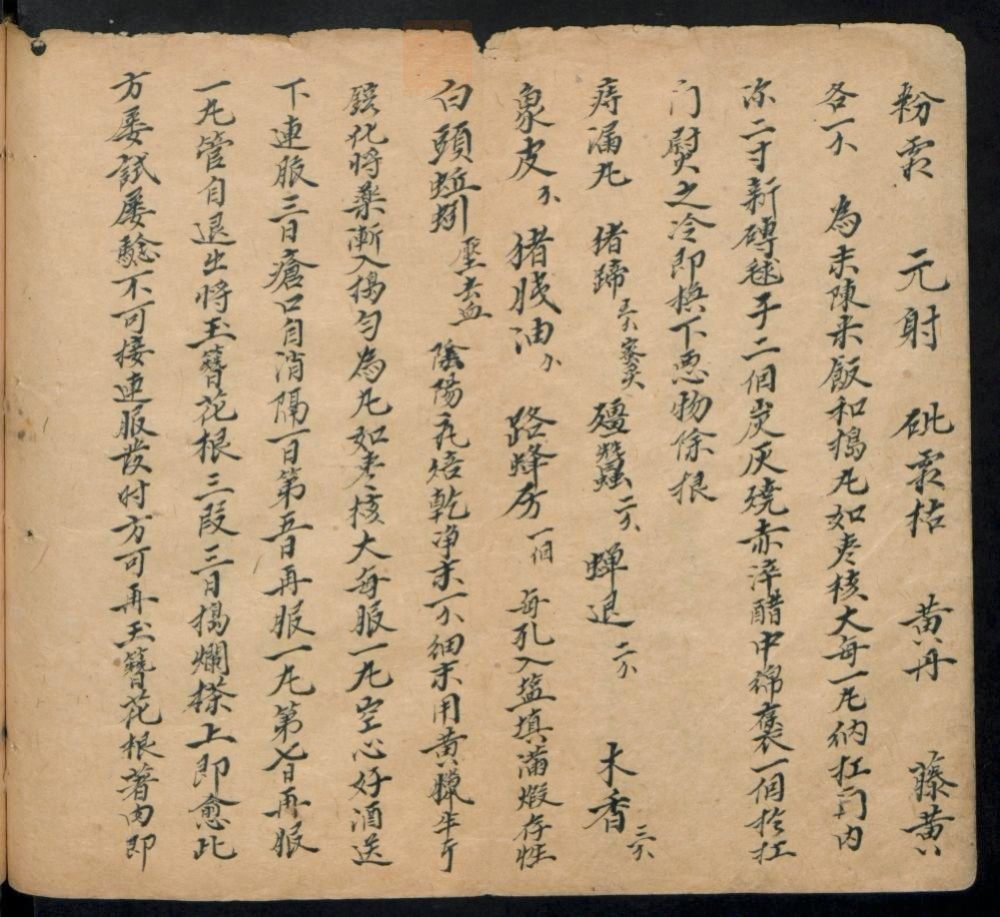 粉霜　元射　砒霜枯　黄丹　藤黄
各一个　為末陳米飯和搗丸如枣核大每一丸納肛门内
深二寸新磚毬子二個炭灰燒赤淬醋中綿裹一個於肛
门熨之冷即换下恶物除根
痔漏丸　猪蹄　殭蠶二个　蝉退二个　木香三个
象皮个　猪胰油个　路蜂房一個　每孔入塩填滿煅存性
白頭蚯蚓　壓去血　陰陽瓦焙乾净末一个細末用黄蠟半斤
鎔化將藥漸入搗匀為丸如枣核大每服一丸空心好酒送
下連服三日瘡口自消隔一日第五日再服一丸第七日再服
一丸管自退出將玉簪花根三段三日搗爛搽上即愈此
方屡試屡騐不可接連服发时方可再玉簪花根著肉即